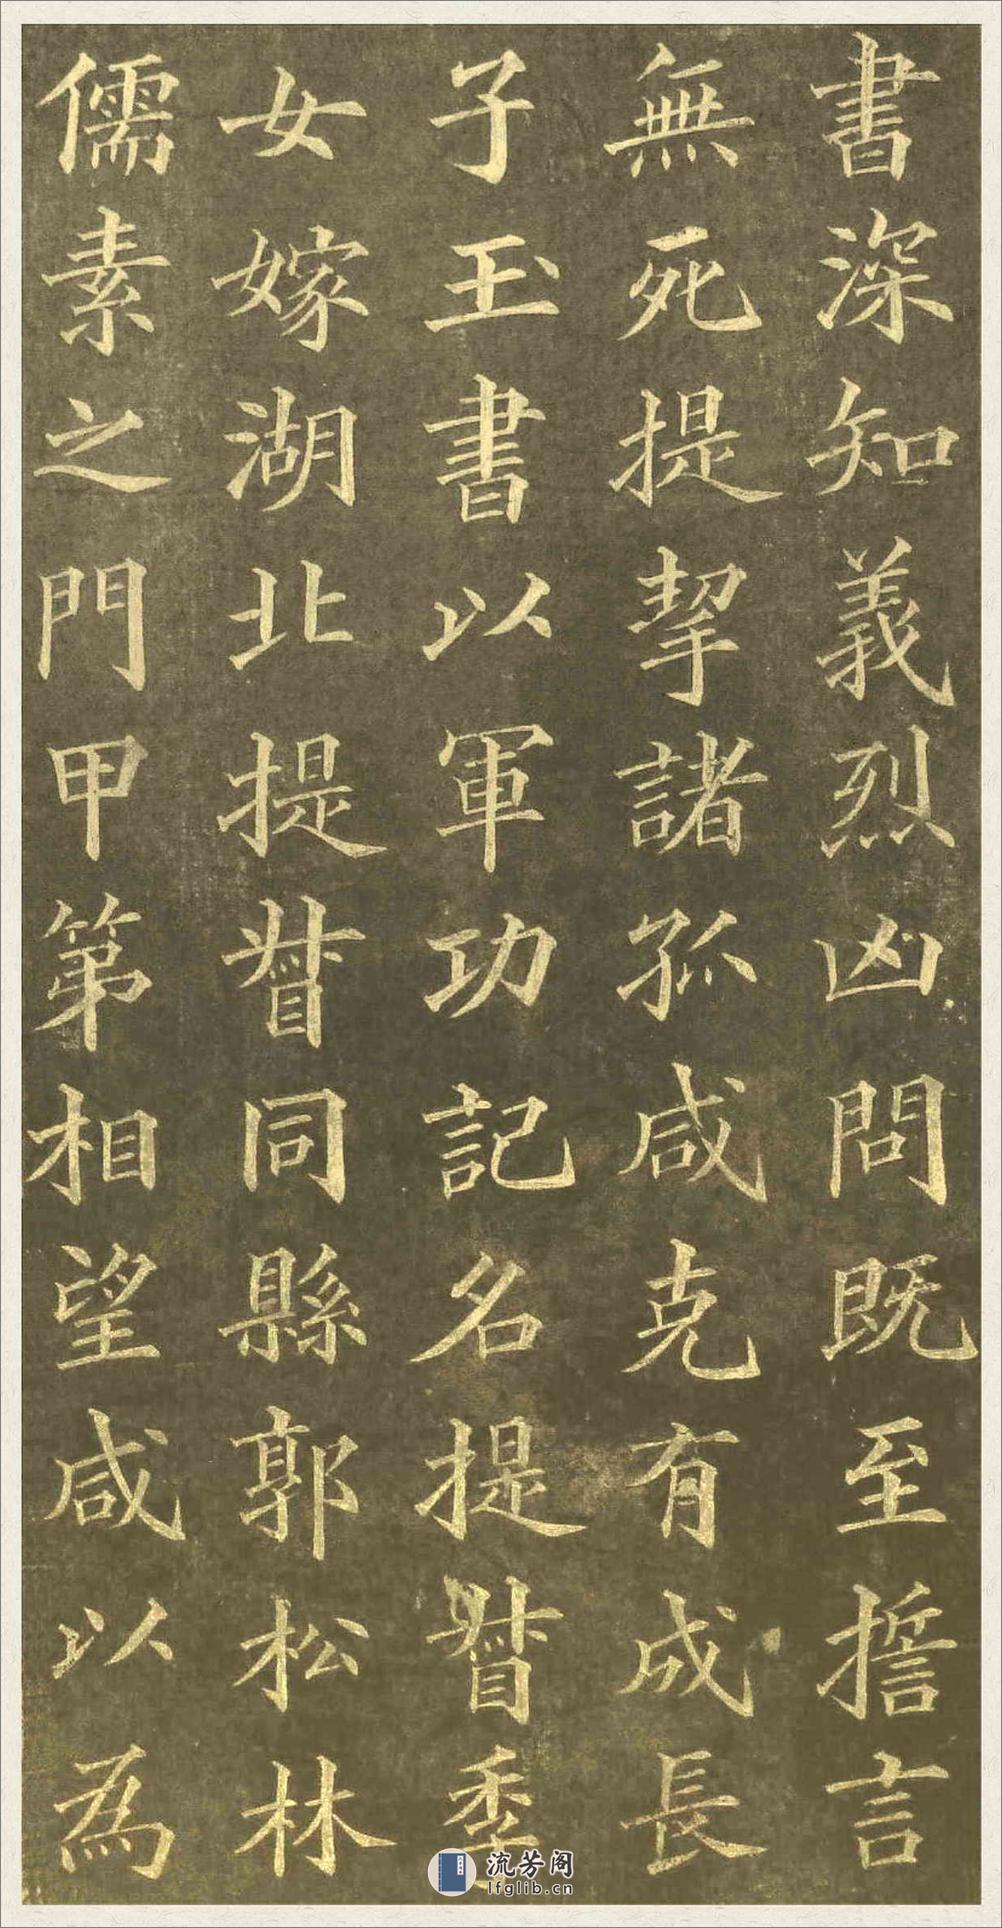 書深知義烈凶問既至誓言
無死提挈諸孤咸克有成長
子玉書以軍功記名提督季
女嫁湖北提督同縣郭松林
儒素之門甲第相望咸以為
流芳阁
lfglib.cn